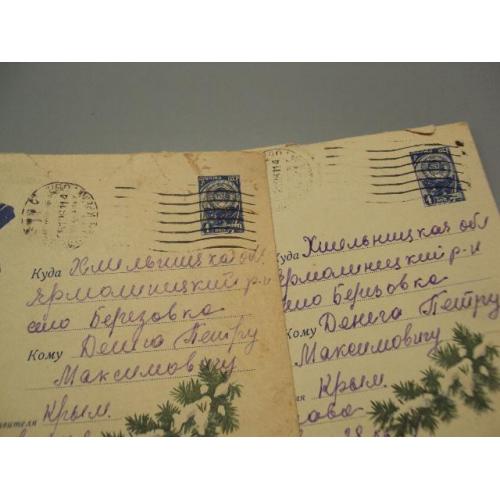 Куда Хмельницкая обл
Ярмолинецкий р-н
село Березовка
Кому Денега Петру
Максимовичу
Крым
Куда Хмельницкая обл
Ярмолинецкий р-н
село Березовка
Кому Денега Петру
Максимовичу
Крым